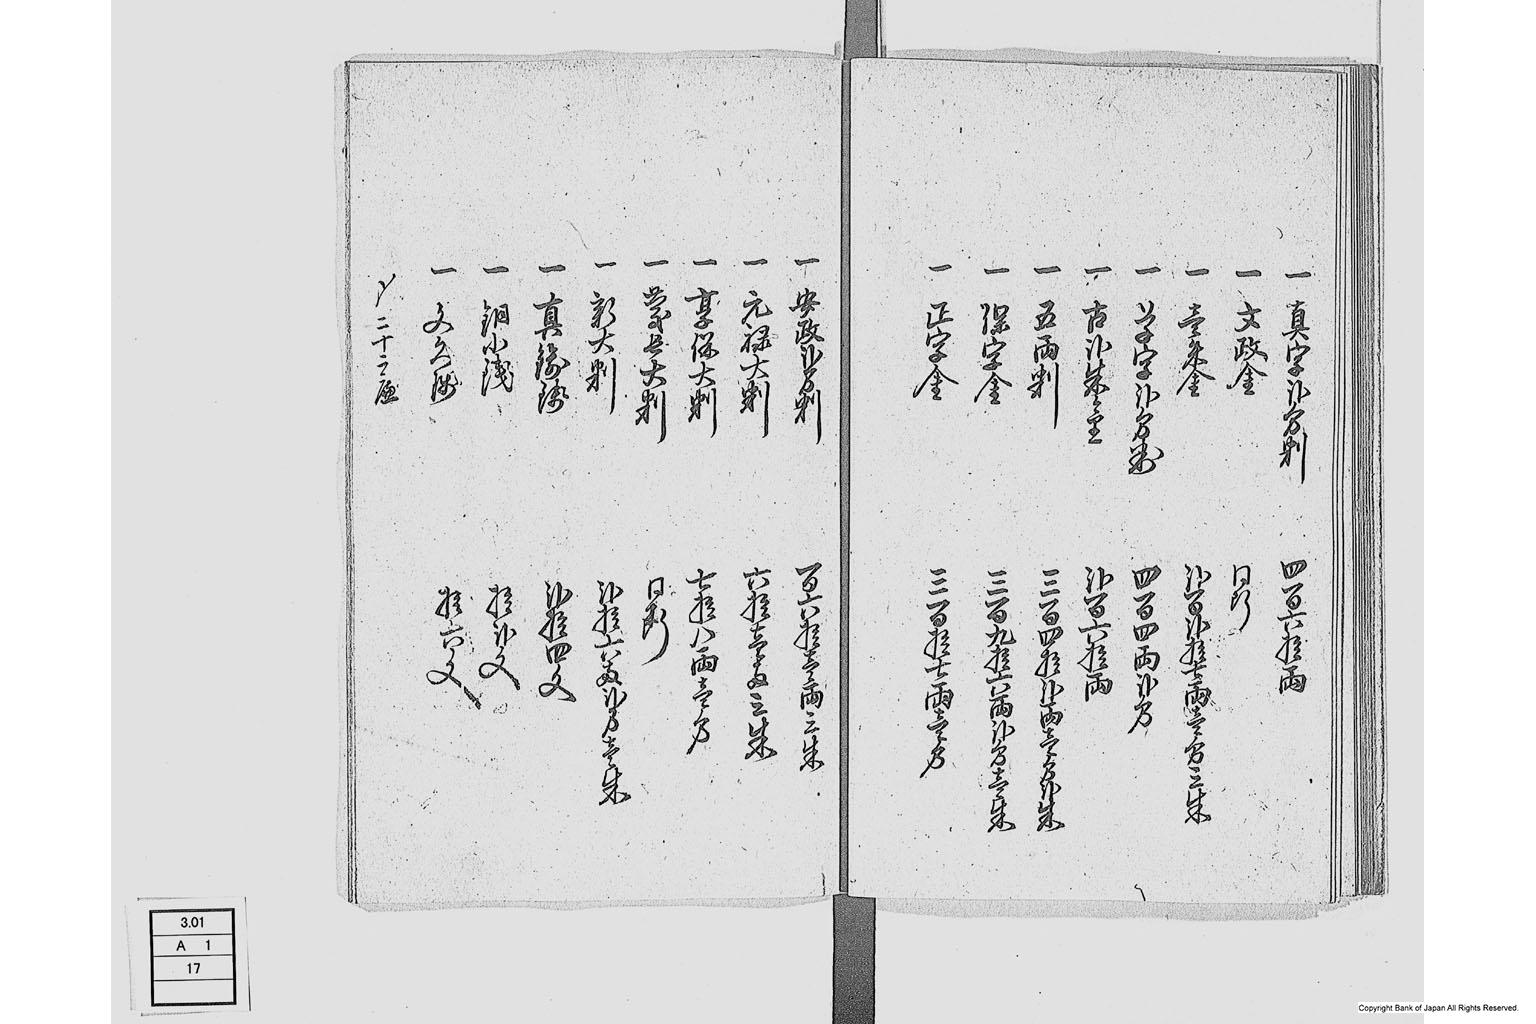 一 真字弐分判 四百六拾両
一 文政金 同断
一 壱朱金 弐百弐拾七両壱分三朱
一 草字弐分判 四百四両弐分
一 古弐朱金 弐百六拾両
一 五両判 三百四拾弐両壱分弐朱
一 保字金 三百九拾六両弐分壱朱
一 正字金 三百拾七両壱分
一 安政弐分判 百六拾壱両三朱
一 元禄大判 六拾壱両三朱
一 享保大判 七拾八両壱分
一 慶長大判 同断
一 新大判 弐拾六両弐分壱朱
一 真鍮銭 弐拾四文
一 銅小銭 拾弐文
一 文久銭 拾六文
二十二
3.01
A 1
17
Copyright Bank of Japan All Rights Reserved.